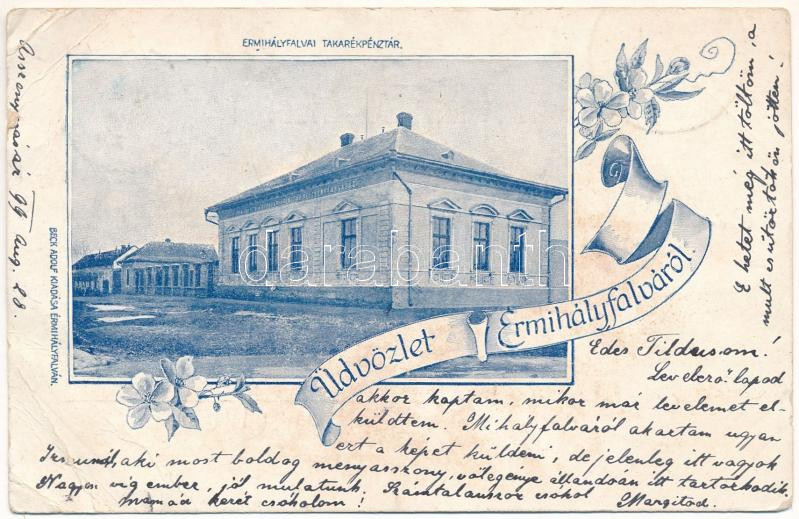 ERMIHÁLYFALVAI TAKARÉKPÉNZTÁR.
BECK ADOLF KIADÁSA ÉRMIHÁLYFALVÁN.
darabanth
Üdvözlet Érmihályfalváról.
99 Aug. 28.
E hetet még itt töltöm, a
mult csütörtökön jöttem!
Edes Tildusom!
lapod
akkor kaptam, mikor már levelemet el-
küldtem. Mihályfalváról akartam ugyan
ezt a képet küldeni, de jelenleg itt vagyok
aki most boldog menyasszony, völegénye állandóan itt tartozkodik.
Nagyon vig ember, jól mulatunk.
kezét csókolom! Számtalanszor csókol Margitod.